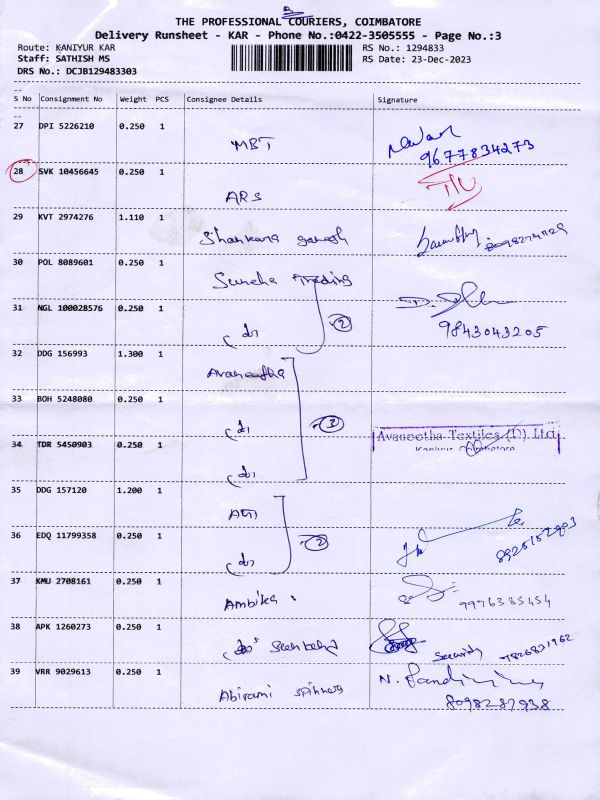 THE PROFESSIONAL COURIERS, COIMBATORE
Delivery Runsheet - KAR - Phone No.:0422-3505555 - Page No.:3
Route: KANIYUR KAR RS No.: 1294833
Staff: SATHISH MS RS Date: 23-Dec-2023
DRS No.: DCJB129483303
S No Consignment No Weight PCS Consignee Details Signature
27 DPI 5226210 0.250 1
MBT 9677834273
28 SVK 10456645 0.250 1
ARS
29 KVT 2974276 1.110 1
Shankara ganesh
30 POL 8089601 0.250 1
Trading
31 NGL 100028576 0.250 1
2
9843043205
32 DDG 156993 1.300 1
33 BOH 5248080 0.250 1
3
Avaneetha Textiles (P) Ltd
34 TDR 5450903 0.250 1
35 DDG 157120 1.200 1
36 EDQ 11799358 0.250 1
2
37 KMU 2708161 0.250 1
Ambika 9976385454
38 APK 1260273 0.250 1
Security
39 VRR 9029613 0.250 1
Abirami Spinners
8098287938